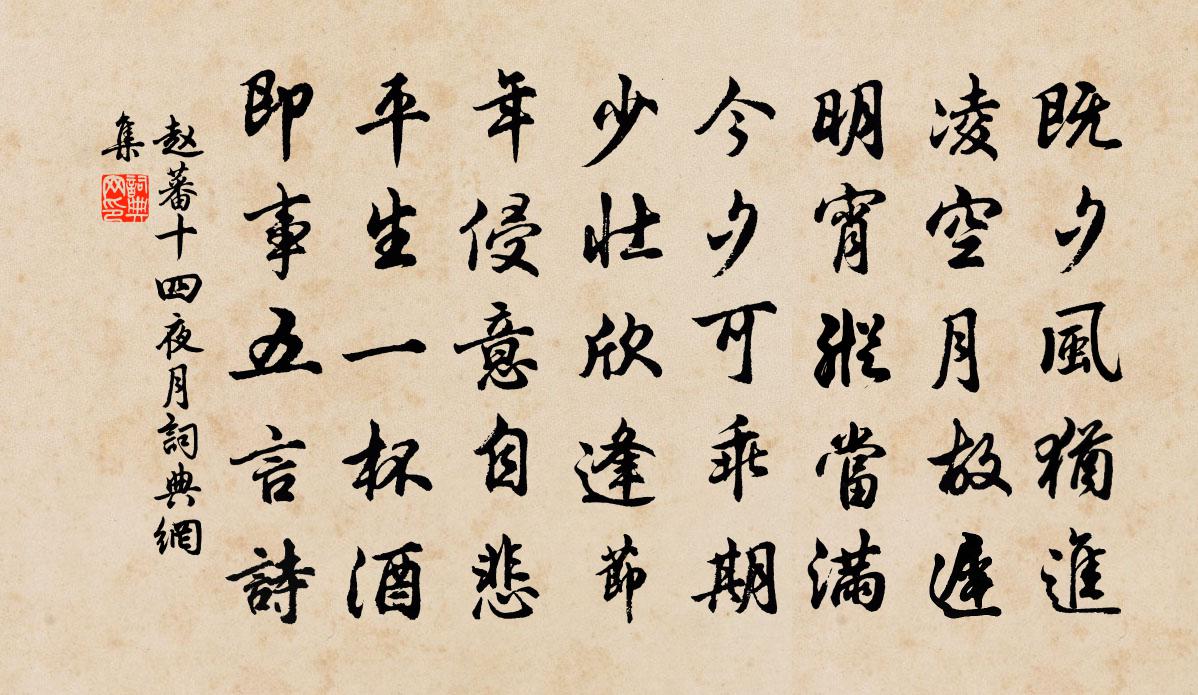 既夕風猶進
凌空月故遲
明宵縱當滿
今夕可乖期
少壯欣逢節
年侵意自悲
平生一杯酒
即事五言詩
赵蕃十四夜月詞典網
集
詞典網印